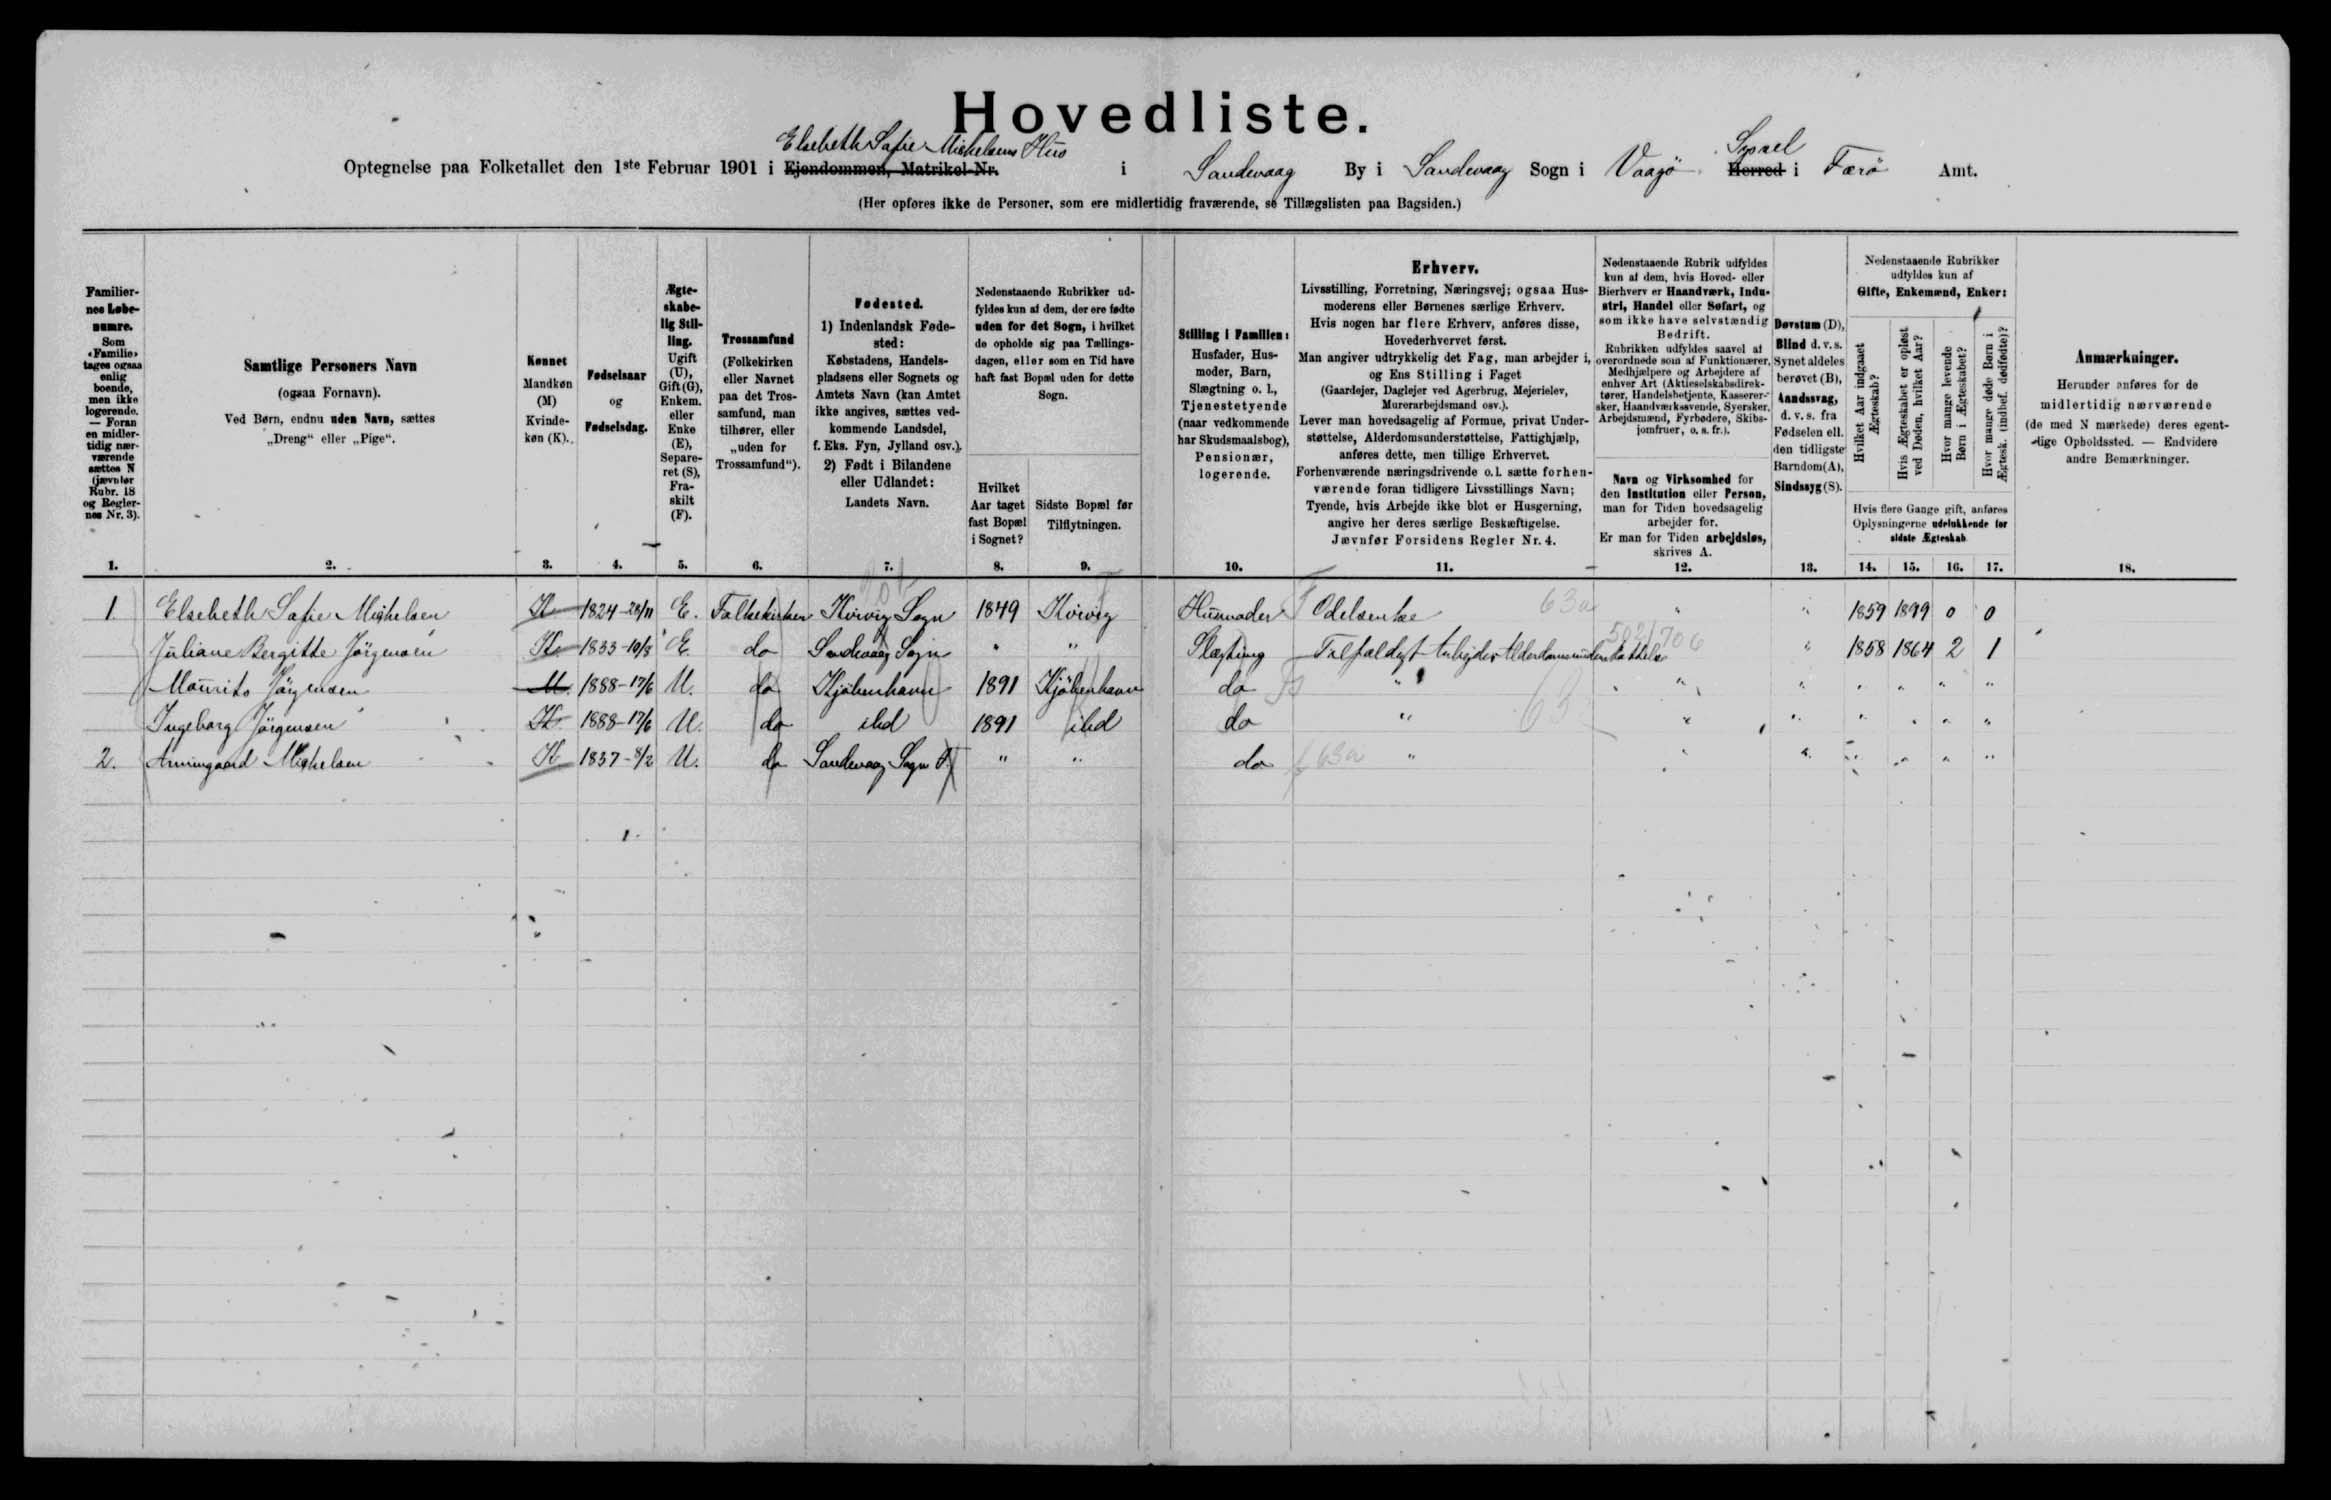 Hovedliste.
Elsebeth Sofie Mickelsens Hus
Syssel
Optegnelse paa Folketallet den 1ste Februar 1901 i Ejendommen, Matrikel-Nr. i Sandevaag By i Sandevaag Sogn i Vaagø Herred i Færø Amt.
(Her opføres ikke de Personer, som ere midlertidig fraværende, se Tillægslisten paa Bagsiden.)
Familier-
nes Løbe-
numre.
Som
«Familie»
tages ogsaa
enlig
boende,
men ikke
logerende.
— Foran
en midler-
tidig nær-
værende
sættes N
(jævnfør
Rubr. 18
og Regler-
nes Nr. 3).
1.
Samtlige Personers Navn
(ogsaa Fornavn).
Ved Børn, endnu uden Navn, sættes
„Dreng“ eller „Pige“.
2.
Kønnet
Mandkøn
(M)
Kvinde-
køn (K).
3.
Fødselsaar
og
Fødselsdag.
4.
Ægte-
skabe-
lig Stil-
ling.
Ugift
(U),
Gift (G),
Enkem.
eller
Enke
(E),
Separe-
ret (S),
Fra-
skilt
(F).
5.
Trossamfund
(Folkekirken
eller Navnet
paa det Tros-
samfund, man
tilhører, eller
„uden for
Trossamfund“).
6.
Fødested.
1) Indenlandsk Føde-
sted:
Købstadens, Handels-
pladsens eller Sognets og
Amtets Navn (kan Amtet
ikke angives, sættes ved-
kommende Landsdel,
f. Eks. Fyn, Jylland osv.).
2) Født i Bilandene
eller Udlandet:
Landets Navn.
7.
Nedenstaaende Rubrikker ud-
fyldes kun af dem, der ere fødte
uden for det Sogn, i hvilket
de opholde sig paa Tællings-
dagen, eller som en Tid have
haft fast Bopæl uden for dette
Sogn.
Hvilket
Aar taget
fast Bopæl
i Sognet?
8.
Sidste Bopæl før
Tilflytningen.
9.
Stilling i Familien:
Husfader, Hus-
moder, Barn,
Slægtning o. l.,
Tjenestetyende
(naar vedkommende
har Skudsmaalsbog),
Pensionær,
logerende.
10.
Erhverv.
Livsstilling, Forretning, Næringsvej; ogsaa Hus-
moderens eller Børnenes særlige Erhverv.
Hvis nogen har flere Erhverv, anføres disse,
Hovederhvervet først.
Man angiver udtrykkelig det Fag, man arbejder i,
og Ens Stilling i Faget
(Gaardejer, Daglejer ved Agerbrug, Mejerielev,
Murerarbejdsmand osv.).
Lever man hovedsagelig af Formue, privat Under-
støttelse, Alderdomsunderstøttelse, Fattighjælp,
anføres dette, men tillige Erhvervet.
Forhenværende næringsdrivende o. l. sætte forhen-
værende foran tidligere Livsstillings Navn;
Tyende, hvis Arbejde ikke blot er Husgerning,
angive her deres særlige Beskæftigelse.
Jævnfør Forsidens Regler Nr. 4.
11.
Nedenstaaende Rubrik udfyldes
kun af dem, hvis Hoved- eller
Bierhverv er Haandværk, Indu-
stri, Handel eller Søfart, og
som ikke have selvstændig
Bedrift.
Rubrikken udfyldes saavel af
overordnede som af Funktionærer,
Medhjælpere og Arbejdere af
enhver Art (Aktieselskabsdirek-
tører, Handelsbetjente, Kasserer-
sker, Haandværkssvende, Syersker,
Arbejdsmænd, Fyrbødere, Skibs-
jomfruer, o. s. fr.).
Navn og Virksomhed for
den Institution eller Person,
man for Tiden hovedsagelig
arbejder for.
Er man for Tiden arbejdsløs,
skrives A.
12.
Døvstum (D),
Blind d. v. s.
Synet aldeles
berøvet (B),
Aandssvag,
d. v. s. fra
Fødselen ell.
den tidligste
Barndom (A),
Sindssyg (S).
13.
Nedenstaaende Rubrikker
udfyldes kun af
Gifte, Enkemænd, Enker:
Hvilket Aar indgaaet
Ægteskab?
Hvis Ægteskabet er opløst
ved Døden, hvilket Aar?
Hvor mange levende
Børn i Ægteskabet?
Hvor mange døde Børn i
Ægtesk. (indbef. dødfødte)?
Hvis flere Gange gift, anføres
Oplysningerne udelukkende for
sidste Ægteskab.
14. 15. 16. 17.
Anmærkninger.
Herunder anføres for de
midlertidig nærværende
(de med N mærkede) deres egent-
lige Opholdssted. — Endvidere
andre Bemærkninger.
18.
1. Elsebeth Sofie Mickelsen K 1824-28/11 E. Folkekirken Kvivig Sogn 1849 Kvivig Husmoder Odelsenke 63a " " 1859 1899 0 0
Juliane Bergitte Jörgensen K 1833-10/3 E. do Sandevaag Sogn " " Slægtning 502/706 " 1858 1864 2 1
Maurits Jörgensen M. 1888-17/6 U. do Kjöbenhavn 1891 Kjöbenhavn do " " " " " " "
Ingeborg Jörgensen K. 1888-17/6 U. do ibid 1891 ibid do " 63 " " " " " "
2. Armingaard Mickelsen K 1837-8/2 U. do Sandevaag Sogn " " do 63a " " " " " " "